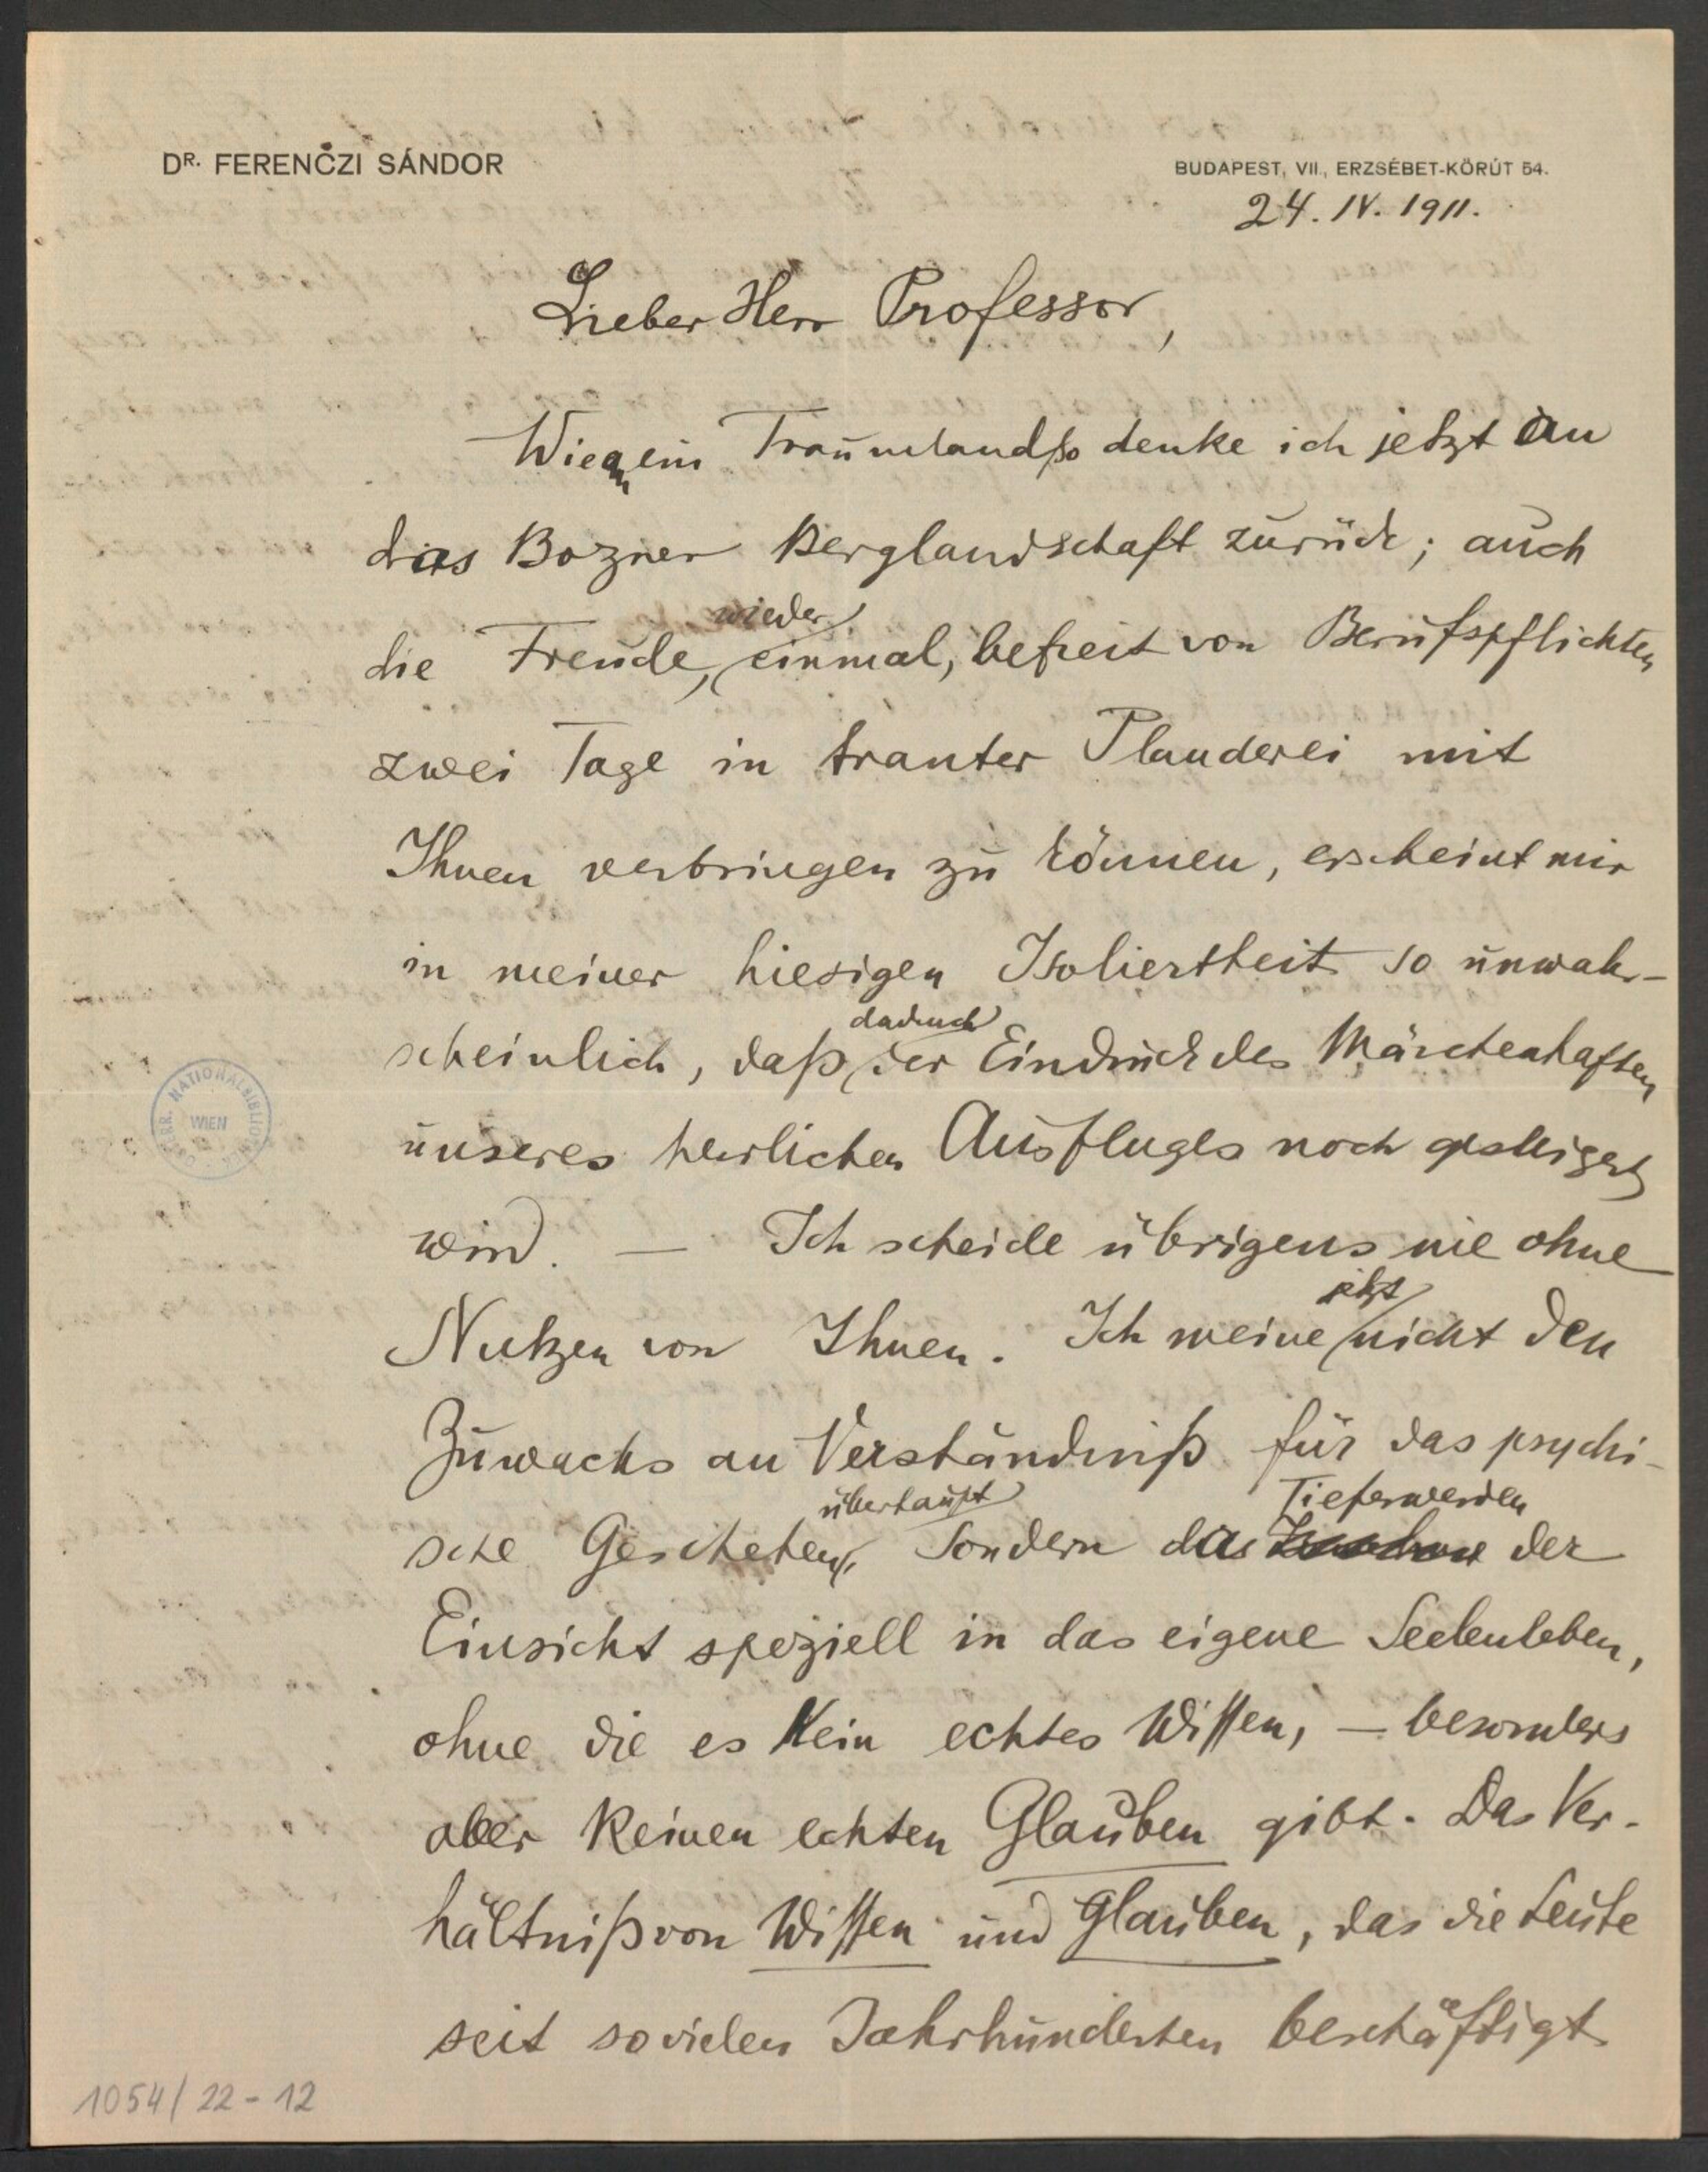 DR. FERENCZI SÁNDOR
BUDAPEST, VII., ERZSÉBET-KÖRÚT 54.
24. IV. 1911.
Lieber Herr Professor,
Wie an ein Traumland so denke ich jetzt an
das Bozner Berglandschaft zurück; auch
die Freude, wieder einmal, befreit von Berufspflichten
zwei Tage in trauter Plauderei mit
Ihnen verbringen zu können, erscheint mir
in meiner hiesigen Isoliertheit so unwahr-
scheinlich, daß dadurch der Eindruck des Märchenhaften
unseres herrlichen Ausfluges noch gesteigert
wird. — Ich scheide übrigens nie ohne
Nutzen von Ihnen. Ich meine jetzt nicht den
Zuwachs an Verständniß für das psychi-
sche Geschehen überhaupt, sondern das Tieferwerden der
Einsicht speziell in das eigene Seelenleben,
ohne die es kein echtes Wissen, — besonders
aber keinen echten Glauben gibt. Das Ver-
hältniß von Wissen und Glauben, das die Leute
seit sovielen Jahrhunderten beschäftigt
ÖSTERR. NATIONALBIBLIOTHEK WIEN
1054/22-12